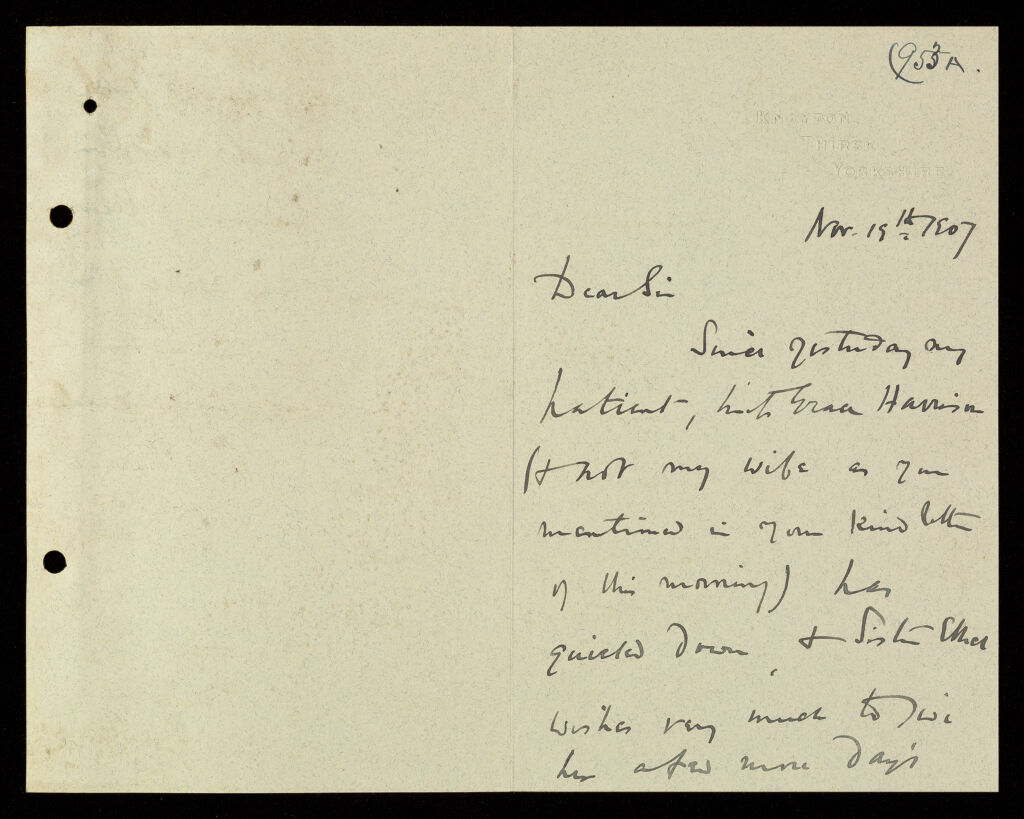 (953A.
KNAYTON.
THIRSK.
YORKSHIRE.
Nov. 19th 1907
Dear Sir
Since yesterday my
patient, Grace Harrison
(& not my wife as you
mentioned in your kind letter
of this morning) has
quieted down, & Sister Ethel
wishes very much to give
her a few more days